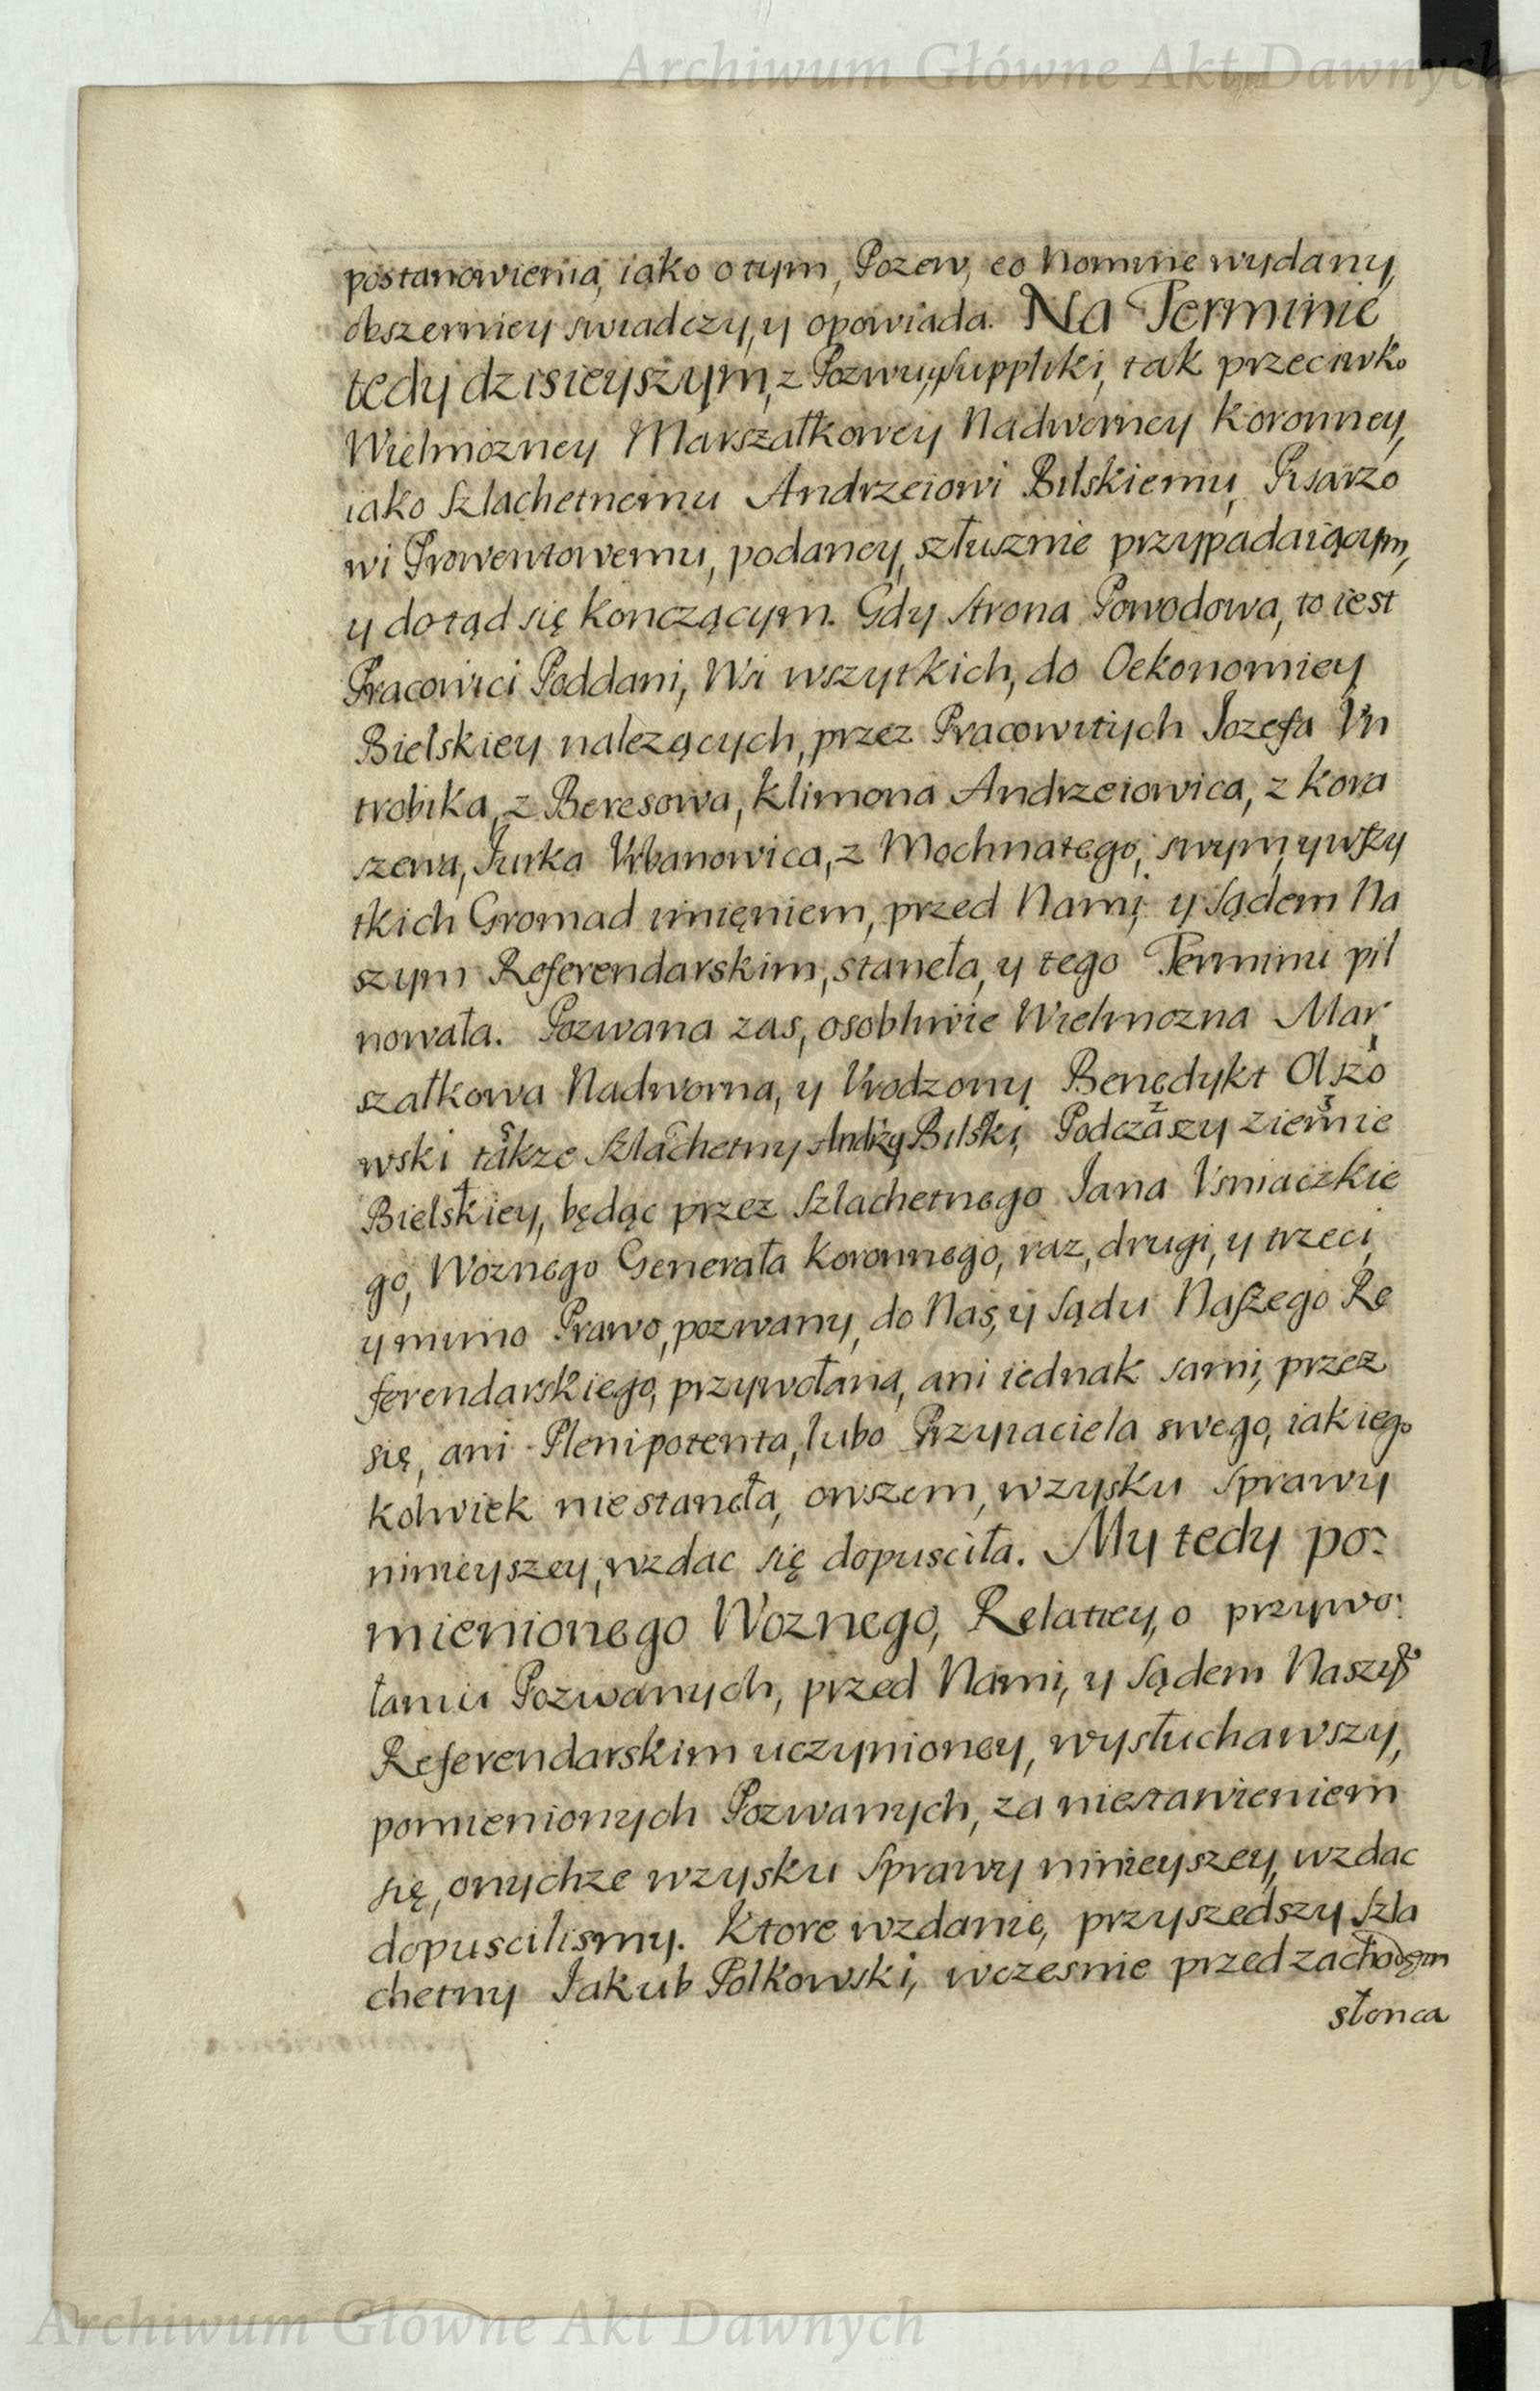 Archiwum Główne Akt Dawnych
postanowienia, iako o tym, Pozew, eo Nomine wydany,
obszerniey swiadczy, y opowiada. Na Terminie
tedy dzisieyszym, z Pozwu, y Suppliki, tak przeciwko
Wielmozney Marszałkowey Nadworney Koronney,
iako Szlachetnemu Andrzeiowi Bilskiemu, Pisarzo
wi Prowentowemu, podaney, szłusznie przypadaiącym,
y dotąd się konczącym. Gdy Strona Powodowa, to iest
Pracowici Poddani, Wsi wszytkich, do Oekonomiey
Bielskiey nalezących, przez Pracowitych Iozefa Vn
trobika, z Beresowa, Klimona Andrzeiowica, z Kora
szewa, Iurka Vrbanowica, z Mochnatego, swym, y wszy
tkich Gromad imięniem, przed Nami, y Sądem Na
szym Referendarskim, staneła, y tego Terminu pil
nowała. Pozwana zas, osobliwie Wielmozna Mar
szałkowa Nadworna, y Vrodzony Benedykt Olszo
wski takze Szlachetny Andrzy Bilski, Podczaszy ziemie
Bielskiey, będąc przez Szlachetnego Iana Vsniaczkie
go, Woznego Generała Koronnego, raz, drugi, y trzeci,
y mimo Prawo, pozwany, do Nas, y Sądu Naszego Re
ferendarskiego, przywołana, ani iednak sami, przez
się, ani Plenipotenta, lubo Przyiaciela swego, iakiego
kolwiek niestaneła, owszem, wzysku Sprawy
ninieyszey, wzdac się dopusciła. My tedy po:
mienionego Woznego, Relatiey, o przywo:
łaniu Pozwanych, przed Nami, y Sądem Naszym
Referendarskim uczynioney, wysłuchawszy,
pomienionych Pozwanych, za niestawieniem
się, onychze wzysku Sprawy ninieyszey, wzdac
dopuscilismy. Ktore wzdanie, przyszedszy Szla
chetny Iakub Polkowski, wczesnie przed zachodem
słonca
Archiwum Główne Akt Dawnych